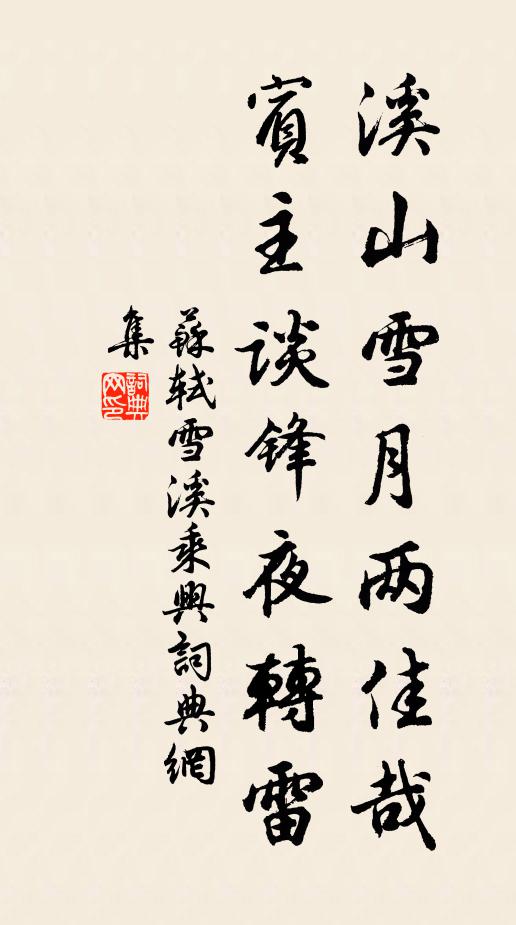 溪山雪月两佳哉
賓主谈鋒夜轉雷
蘇軾雪溪乘興詞典網
集
詞典网印